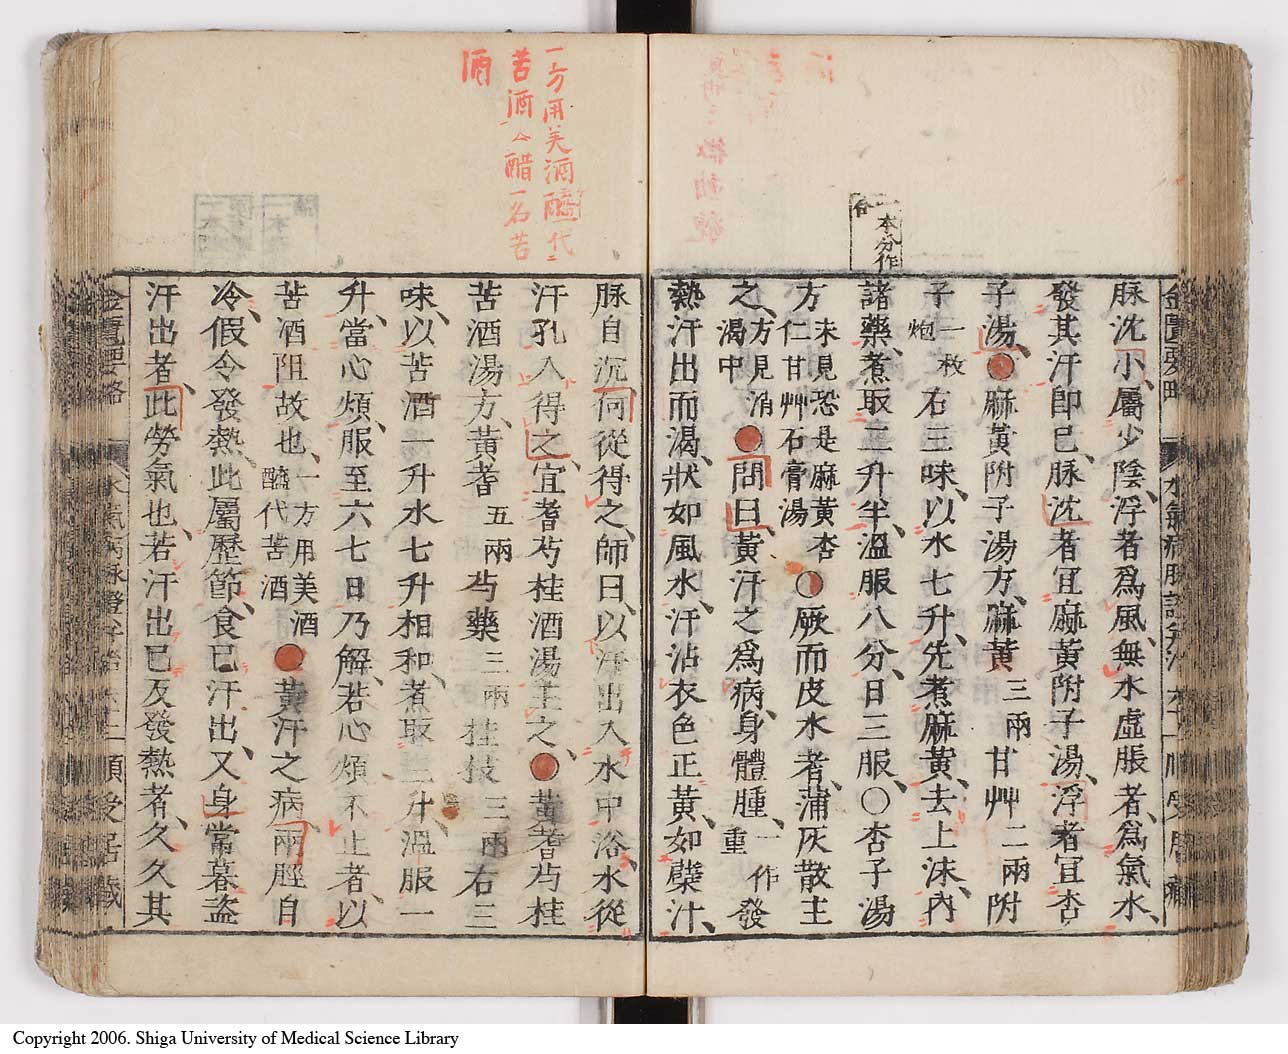 一本分作
谷
脉沈小屬少陰、浮者爲風、無水虛脹者、爲氣水、
發其汗即已、脉沈者宜麻黃附子湯、浮者宜杏
子湯、●麻黃附子湯方、麻黃三兩甘艸二兩附
子一枚炮右三味、以水七升、先煮麻黃、去上沫、內
諸藥、煮取二升半、溫服八分、日三服、○杏子湯
方未見恐是麻黃杏仁甘艸石膏湯○厥而皮水者、蒲灰散主
之、方見消渴中●問曰、黃汗之爲病、身體腫、一作重發
熱汗出而渴、狀如風水、汗沾衣色正黃、如蘗汁、
一方用美酒醯代
苦酒ハ醋一名苦
酒
脉自沉、何從得之、師曰、以汗出入水中浴、水從
汗孔入得之、宜耆芍桂酒湯主之、●黃耆芍桂
苦酒湯方、黃耆五兩芍藥三兩桂枝三兩右三
味、以苦酒一升水七升相和、煮取三升、溫服一
升、當心煩、服至六七日乃解、若心煩不止者、以
苦酒阻故也、一方用美酒醯代苦酒●黃汗之病、兩脛自
冷、假令發熱、此屬歷節、食已汗出、又身常暮盗
汗出者、此勞氣也、若汗出已反發熱者、久久其
金匱要略
Copyright 2006. Shiga University of Medical Science Library